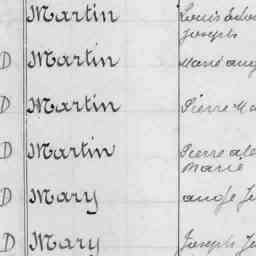 Martin Louis
Joseph
D Martin Marie
D Martin Pierre
D Martin Pierre
Marie
D Mary ange
D Mary Joseph